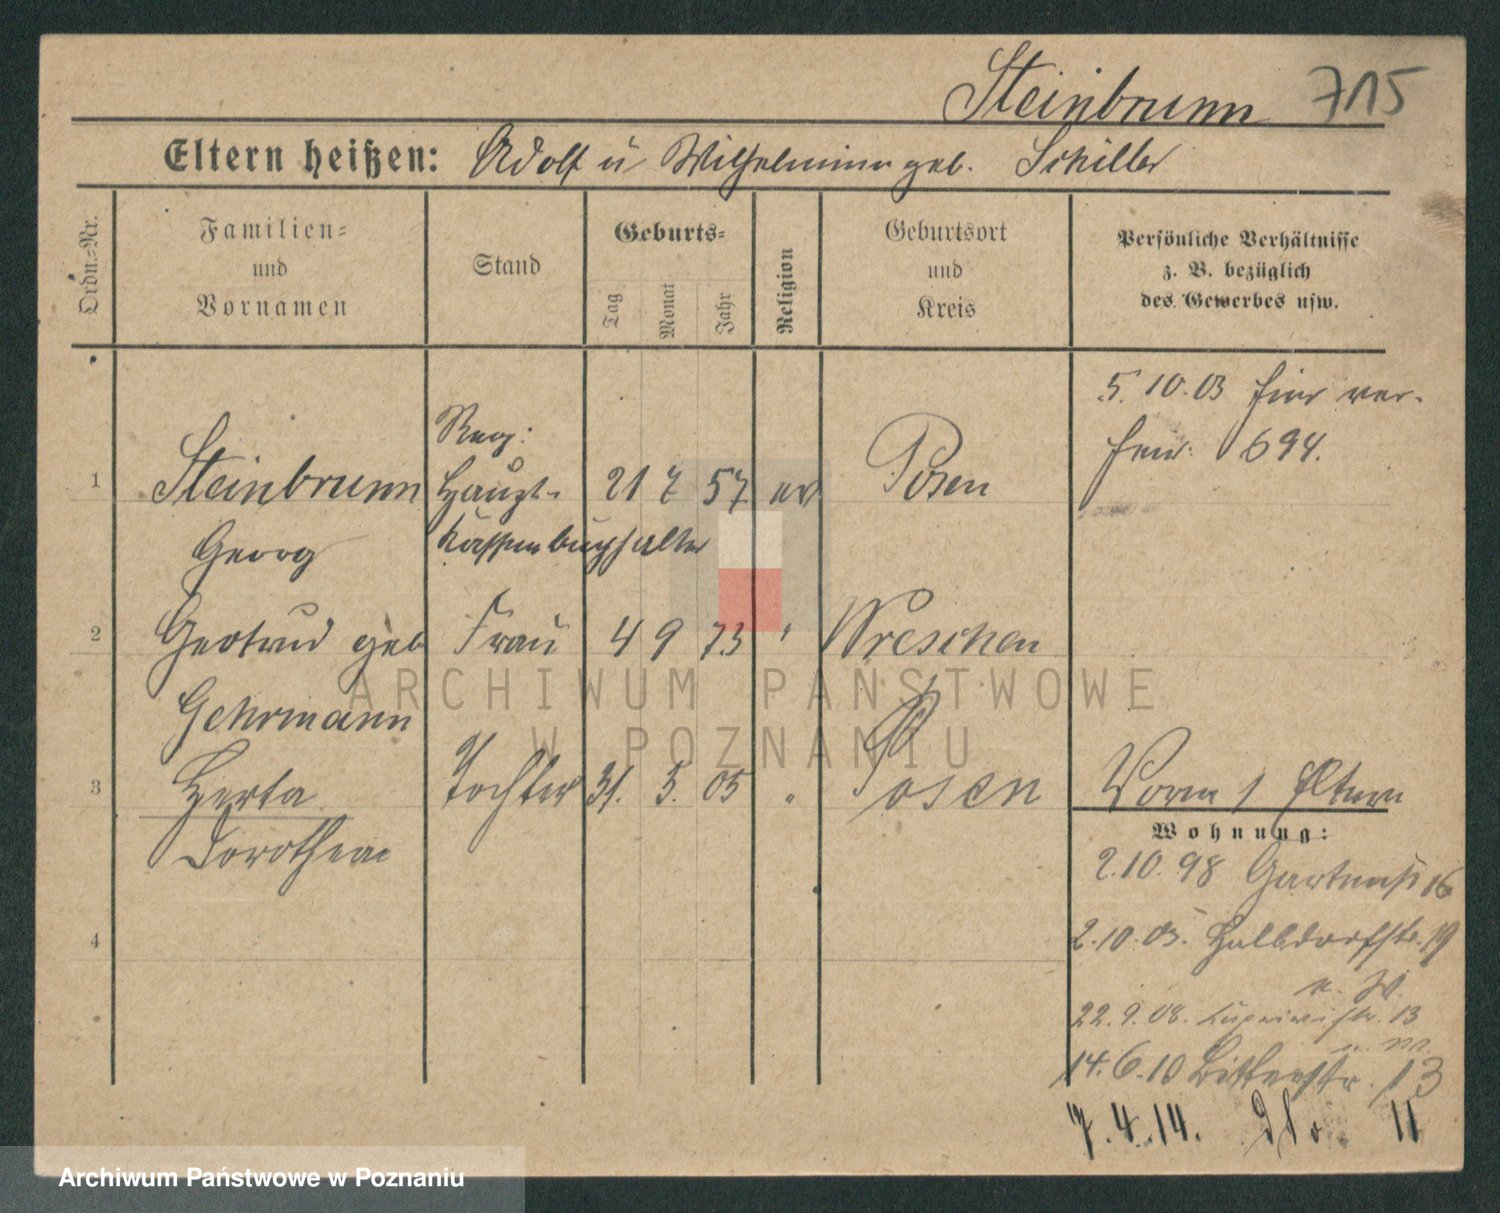 Steinbrunn 715
Eltern heißen: Adolf u Wilhelmine geb. Schiller
Ordn.-Nr.
Familien-
und
Vornamen
Stand
Geburts-
Tag
Monat
Jahr
Religion
Geburtsort
und
Kreis
Persönliche Verhältnisse
z. B. bezüglich
des Gewerbes usw.
5. 10. 03 hier ver-
heir. 694.
Reg:
1 Steinbrunn Haupt- 21 7 57 ev Posen
Georg Kassenbuchhalter
2 Gertrud geb Frau 4 9 73 " Wreschen
Gehrmann
3 Herta Tochter 31. 5. 05 " Posen
Dorothea
Vorm 1 Eltern
Wohnung:
2.10.98 Gartenstr 16
4
2.10.03. Halbdorfstr. 19
u. W.
22.9.08. Caprivistr. 13
u. W.
14.6.10 Bitterstr. 13
7.4.14. 11
ARCHIWUM PAŃSTWOWE
W POZNANIU
Archiwum Państwowe w Poznaniu